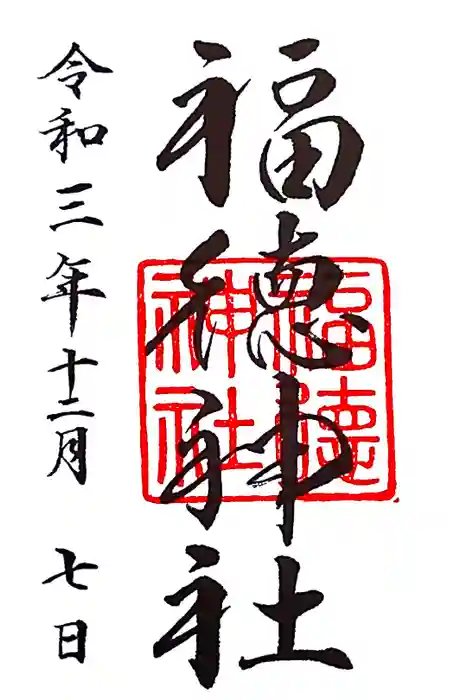 福徳神社
令和三年十二月七日
福德
神社